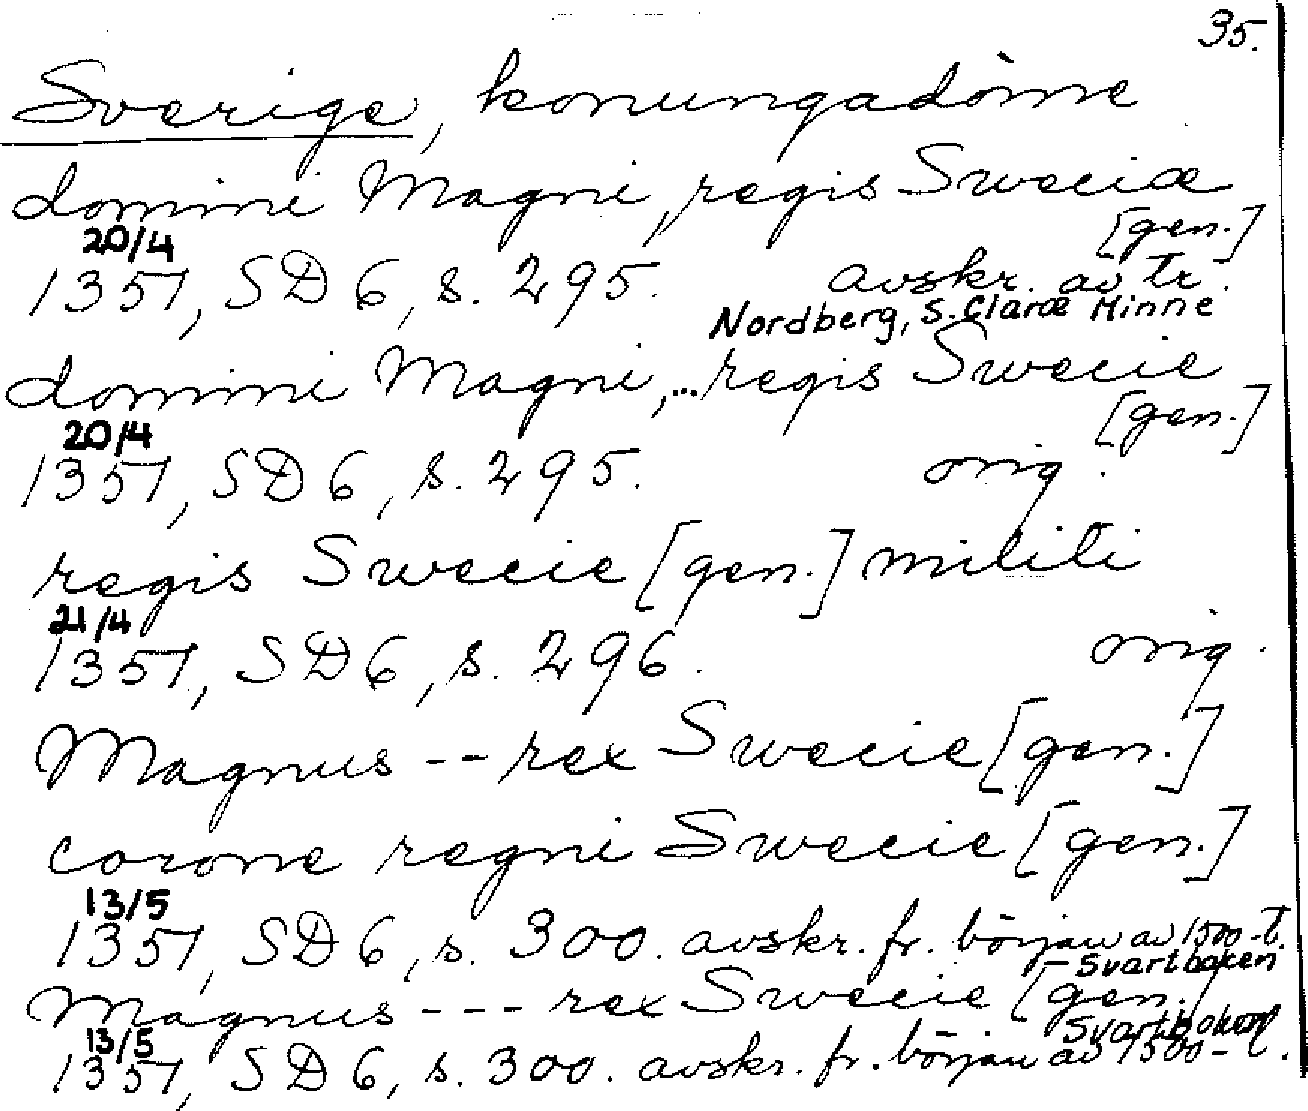 35.
Sverige, konungadöme
domini Magni, regis Sweciæ
[gen.]
20/4
1351, SD 6, s. 295. avskr. av tr.
Nordberg, S. Claræ Minne
domini Magni,... regis Swecie
[gen.]
20/4
1351, SD 6, s. 295. orig.
regis Swecie [gen.] militi
21/4
1351, SD 6, s. 296. orig.
Magnus -- rex Swecie [gen.]
corone regni Swecie [gen.]
13/5
1351, SD 6, s. 300. avskr. fr. början av 1500-t.
- Svartboken
Magnus --- rex Swecie [gen.]
Svartboken
13/5
1351, SD 6, s. 300. avskr. fr. början av 1500-t.